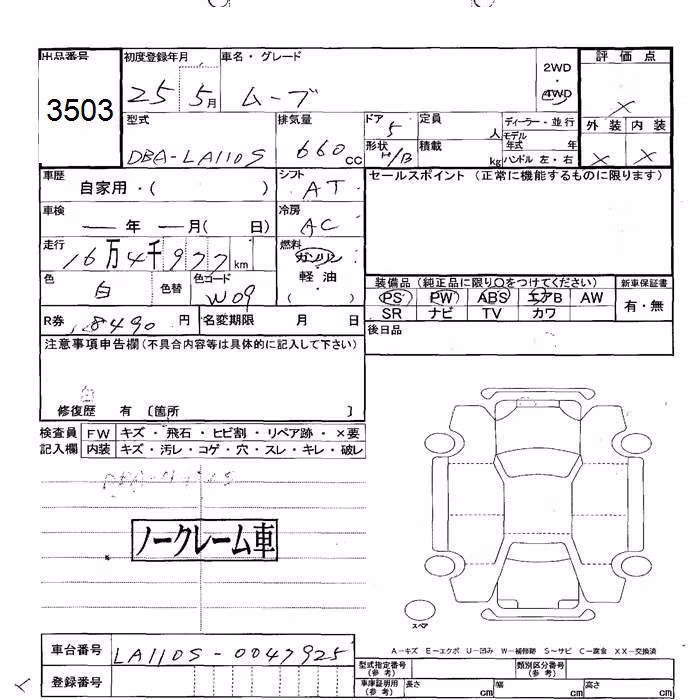 出品番号 初度登録年月 車名・グレード 2WD・4WD 評価点
3503 25 5月 ムーブ ×
型式 排気量 ドア 定員 ディーラー・並行 外装 内装
DBA-LA110S 660cc 5 人 モデル年式 年
形状 H/B 積載 kg ハンドル 左・右 × ×
車歴 シフト セールスポイント (正常に機能するものに限ります)
自家用・( ) AT
車検 冷房
―年 ―月( 日) AC
走行 燃料
16万4千977km ガソリン
色 色替 色コード 軽油
白 W09 ( )
装備品 (純正品に限り○をつけてください) 新車保証書
PS PW ABS エアB AW 有・無
SR ナビ TV カワ
R券 8490円 名変期限 月 日
後日品
注意事項申告欄(不具合内容等は具体的に記入して下さい)
修復歴 有 〔箇所 〕
検査員 FW キズ・飛石・ヒビ割・リペア跡・×要
記入欄 内装 キズ・汚レ・コゲ・穴・スレ・キレ・破レ
ノークレーム車
スペア
A-キズ E-エクボ U-凹み W-補修跡 S-サビ C-腐食 XX-交換済
車台番号 LA110S-0047925
登録番号
型式指定番号(参考) 類別区分番号(参考)
車庫証明用(参考) 長さ cm 幅 cm 高さ cm